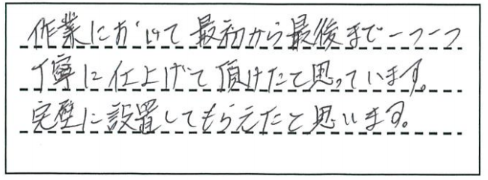 作業にかけて最初から最後まで一つ一つ
丁寧に仕上げて頂けたと思っています。
完璧に設置してもらえたと思います。